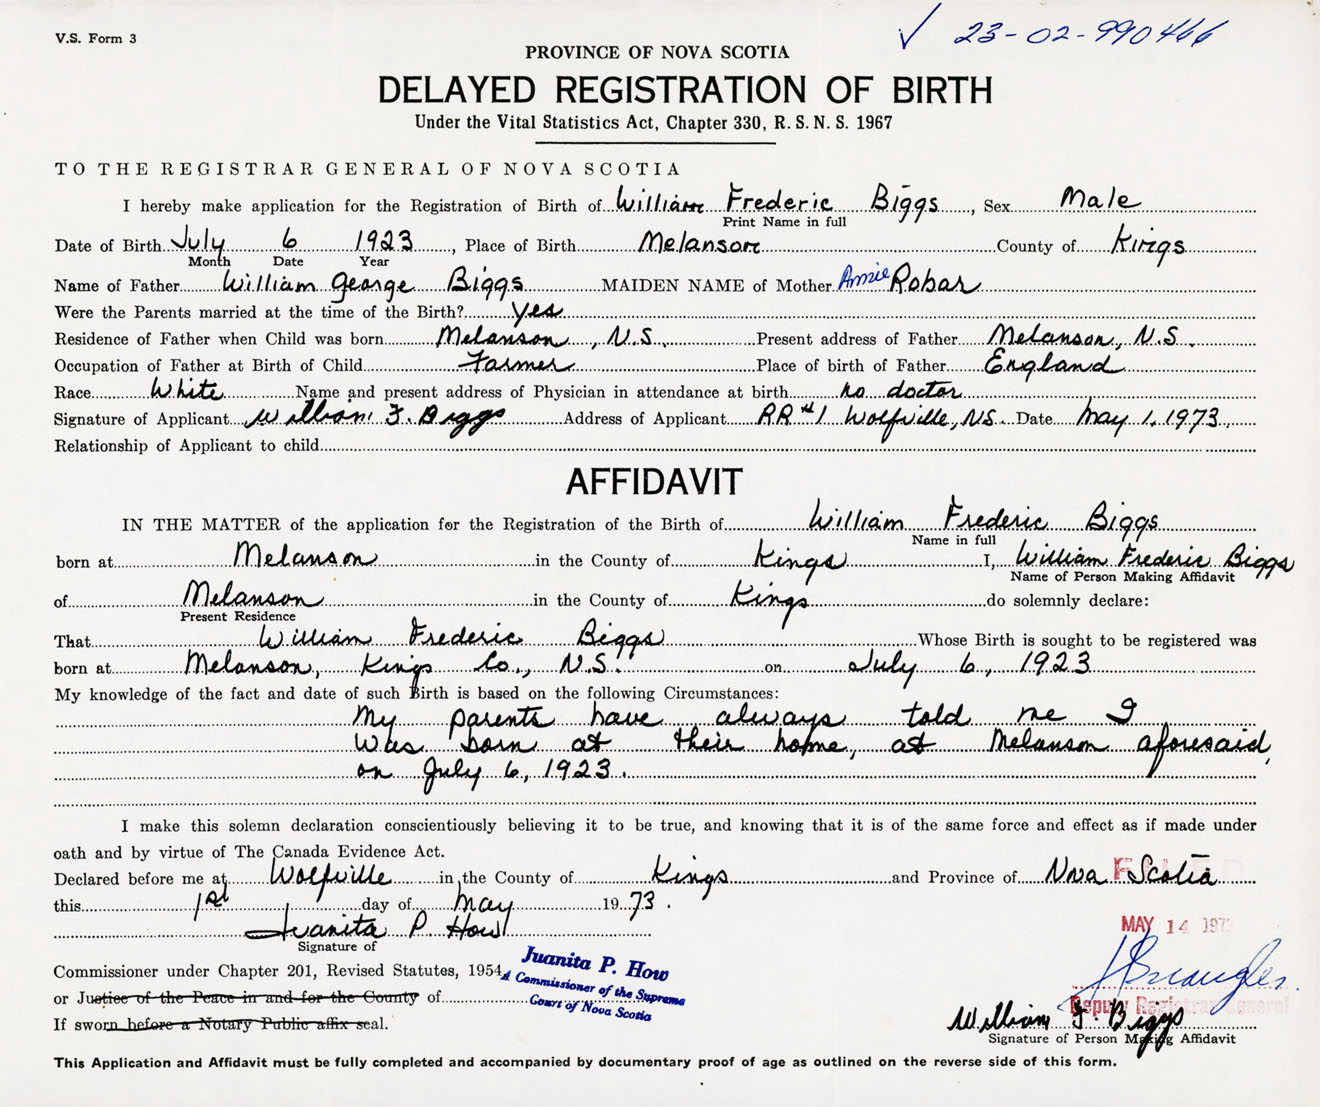 V.S. Form 3
✓ 23-02-990466
PROVINCE OF NOVA SCOTIA
DELAYED REGISTRATION OF BIRTH
Under the Vital Statistics Act, Chapter 330, R. S. N. S. 1967
TO THE REGISTRAR GENERAL OF NOVA SCOTIA
I hereby make application for the Registration of Birth of William Frederic Biggs, Sex Male
Print Name in full
Date of Birth July 6 1923, Place of Birth Melanson County of Kings
Month Date Year
Name of Father William George Biggs MAIDEN NAME of Mother Annie Robar
Were the Parents married at the time of the Birth? yes
Residence of Father when Child was born Melanson, N.S. Present address of Father Melanson, N.S.
Occupation of Father at Birth of Child Farmer Place of birth of Father England
Race White Name and present address of Physician in attendance at birth no doctor
Signature of Applicant William F. Biggs Address of Applicant RR #1 Wolfville, NS. Date May 1, 1973
Relationship of Applicant to child
AFFIDAVIT
IN THE MATTER of the application for the Registration of the Birth of William Frederic Biggs
Name in full
born at Melanson in the County of Kings I, William Frederic Biggs
Name of Person Making Affidavit
of Melanson in the County of Kings do solemnly declare:
Present Residence
That William Frederic Biggs Whose Birth is sought to be registered was
born at Melanson, Kings Co., N.S. on July 6, 1923
My knowledge of the fact and date of such Birth is based on the following Circumstances:
My parents have always told me I
was born at their home, at Melanson aforesaid,
on July 6, 1923.
I make this solemn declaration conscientiously believing it to be true, and knowing that it is of the same force and effect as if made under
oath and by virtue of The Canada Evidence Act.
FILED
Declared before me at Wolfville in the County of Kings and Province of Nova Scotia
this 1st day of May 1973.
MAY 14 1973
Juanita P. How
Signature of
Juanita P. How
A Commissioner of the Supreme
Court of Nova Scotia
Commissioner under Chapter 201, Revised Statutes, 1954,
or Justice of the Peace in and for the County of
If sworn before a Notary Public affix seal.
Deputy Registrar General
William F. Biggs
Signature of Person Making Affidavit
This Application and Affidavit must be fully completed and accompanied by documentary proof of age as outlined on the reverse side of this form.